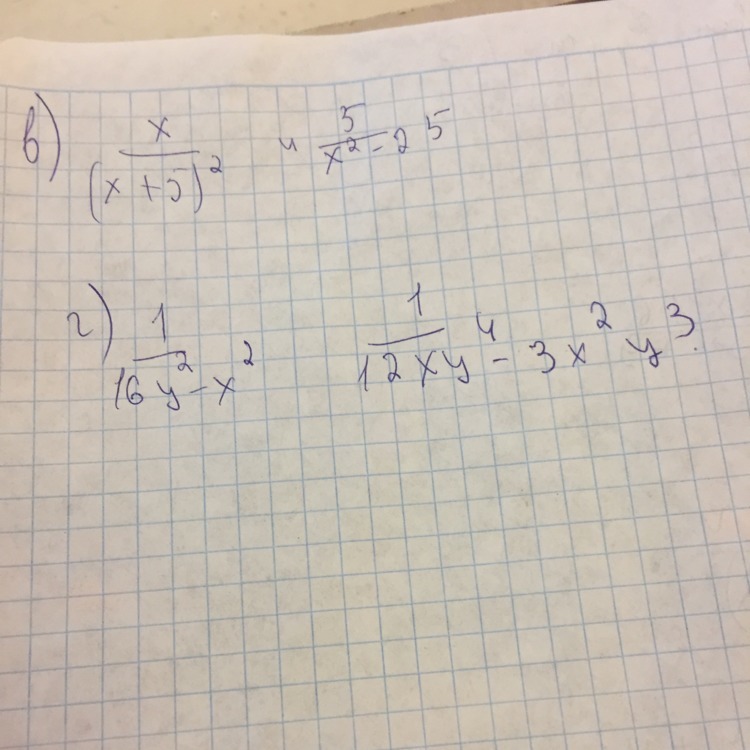 в) x/(x+5)² и 5/(x²-25)
г) 1/(16y²-x²) 1/(12xy⁴-3x²y³).